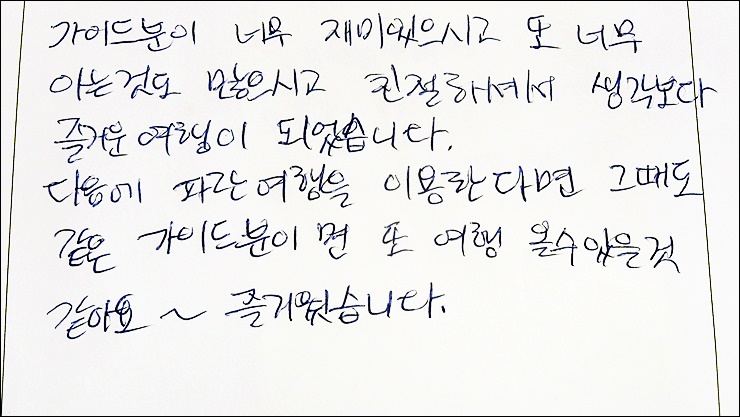 가이드분이 너무 재미있으시고 또 너무
아는것도 많으시고 친절하셔서 생각보다
즐거운 여행이 되었습니다.
다음에 파란여행을 이용한다면 그때도
같은 가이드분이면 또 여행 올수있을것
같아요 ~ 즐거웠습니다.